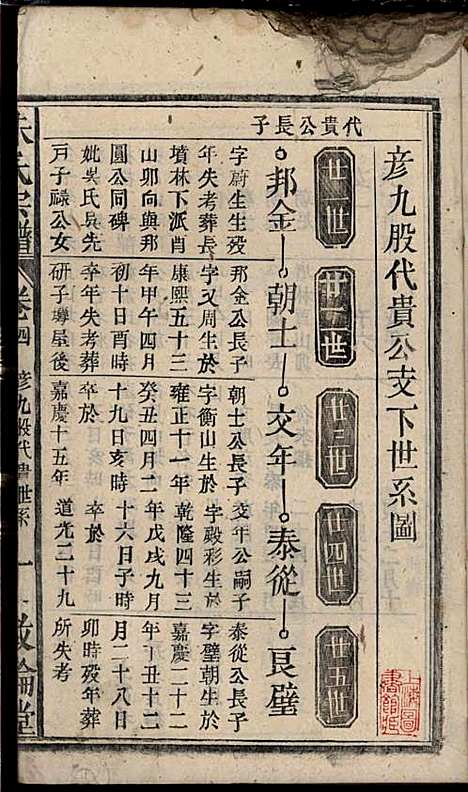 彦九股代貴公支下世系圖
廿一世
廿二世
廿三世
廿四世
廿五世
代貴公長子
邦金
朝士
交年
泰從
良璧
字蔚生生殁
年失考葬長
墳林下派肖
山卯向與那
圓公同碑
妣吳氏吳先
戸子祿公女
邦金公長子
字又周生於
康熙五十三
年甲午四月
初十日酉時
卒年失考葬
研子塆屋後
朝士公長子
字衡山生於
雍正十一年
癸丑四月二
十九日亥時
卒於
嘉慶十五年
交年公嗣子
字殿彩生於
乾隆四十三
年戊戌九月
十六日子時
卒於
道光二十九
泰從公長子
字璧朝生於
嘉慶二十二
年丁丑十二
月二十八日
卯時殁年葬
所失考
氏宗譜
卷四
彦九股代貴世系
一
倫堂
上海圖書館藏